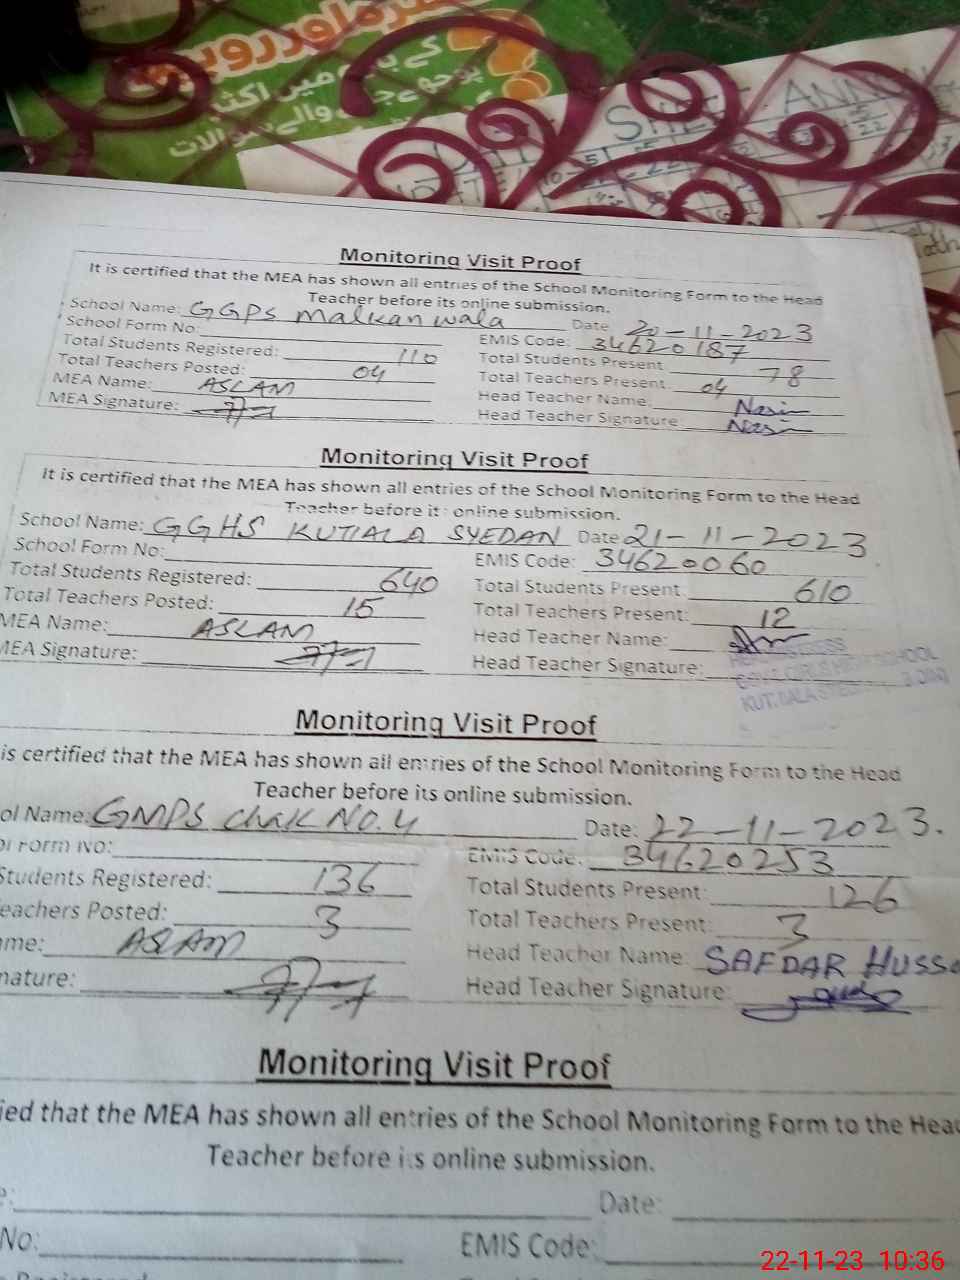 کے بارے میں اکثر
پوچھے جانے والے سوالات
DATE SHEET ANNU
Monitoring Visit Proof
It is certified that the MEA has shown all entries of the School Monitoring Form to the Head
Teacher before its online submission.
School Name: GGPS Malkan wala Date 20-11-2023
School Form No: EMIS Code: 34620187
Total Students Registered: 110 Total Students Present: 78
Total Teachers Posted: 04 Total Teachers Present: 04
MEA Name: ASLAM Head Teacher Name: Nasim
MEA Signature: Head Teacher Signature: Nasim
Monitoring Visit Proof
It is certified that the MEA has shown all entries of the School Monitoring Form to the Head
Teacher before its online submission.
School Name: GGHS KUTIALA SYEDAN Date 21-11-2023
School Form No: EMIS Code: 34620060
Total Students Registered: 640 Total Students Present: 610
Total Teachers Posted: 15 Total Teachers Present: 12
MEA Name: ASLAM Head Teacher Name:
MEA Signature: Head Teacher Signature:
GOVT. GIRLS HIGH SCHOOL
Monitoring Visit Proof
is certified that the MEA has shown all entries of the School Monitoring Form to the Head
Teacher before its online submission.
ol Name: GMPS Chak No. 4 Date: 22-11-2023.
ol Form No: EMIS Code: 34620253
Students Registered: 136 Total Students Present: 126
eachers Posted: 3 Total Teachers Present: 3
me: ASLAM Head Teacher Name: SAFDAR HUSSA
nature: Head Teacher Signature:
Monitoring Visit Proof
ied that the MEA has shown all entries of the School Monitoring Form to the Hea
Teacher before its online submission.
Date:
No: EMIS Code:
22-11-23 10:36